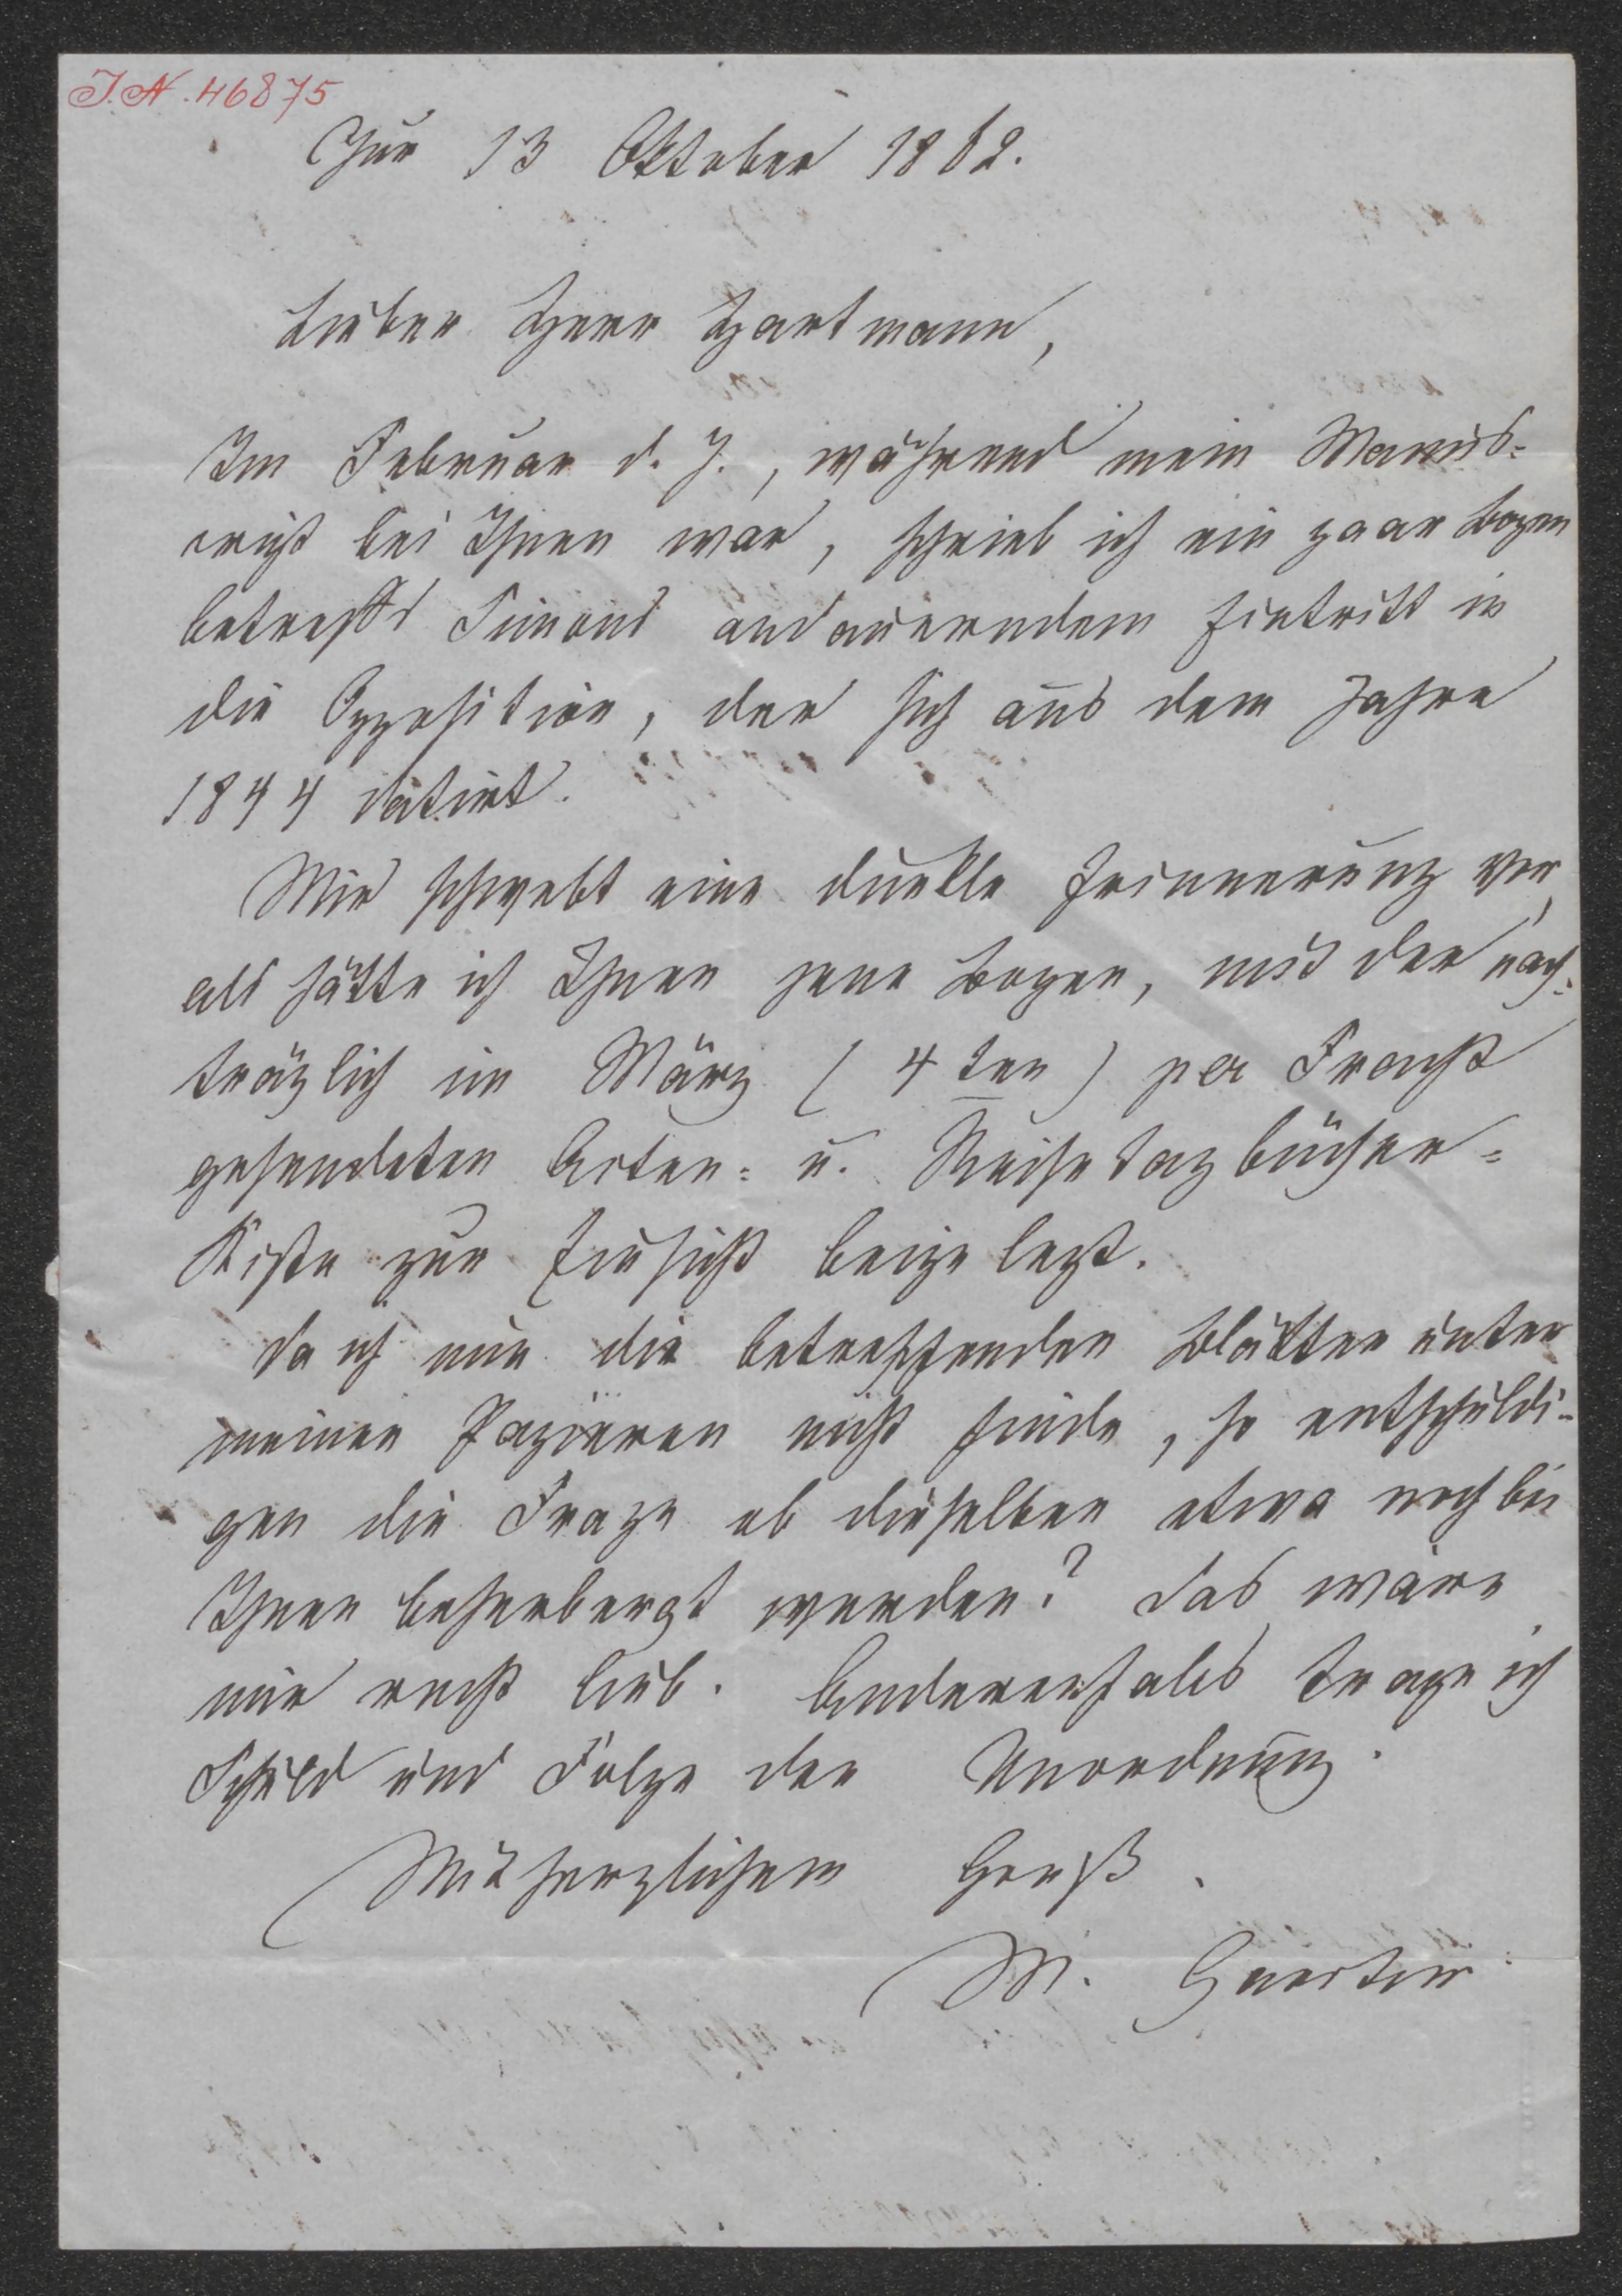 I.N. 46875
Chur 13 Oktober 1862.
Lieber Herr Hartmann,
Im Februar d. J., während mein Manus-
cript bei Ihnen war, schrieb ich ein paar Bogen
betreffs Simons andauerndem Eintritt in
die Opposition, der sich aus dem Jahre
1844 datirt.
Mir schwebt eine dunkle Erinnerung vor,
als hätte ich Ihnen jene Bogen, mit der nach-
träglich im März (4ten) per Fracht
gesendeten Acten- u. Reisetagbücher-
Kiste zur Einsicht beigelegt.
Da ich nun die betreffenden Blätter unter
meinen Papieren nicht finde, so entschuldi-
gen die Frage ob dieselben etwa noch bei
Ihnen beherbergt werden? Das wäre
mir recht lieb. Anderenfalls trage ich
Schuld und Folge der Unordnung.
Mit herzlichem Gruß.
M.